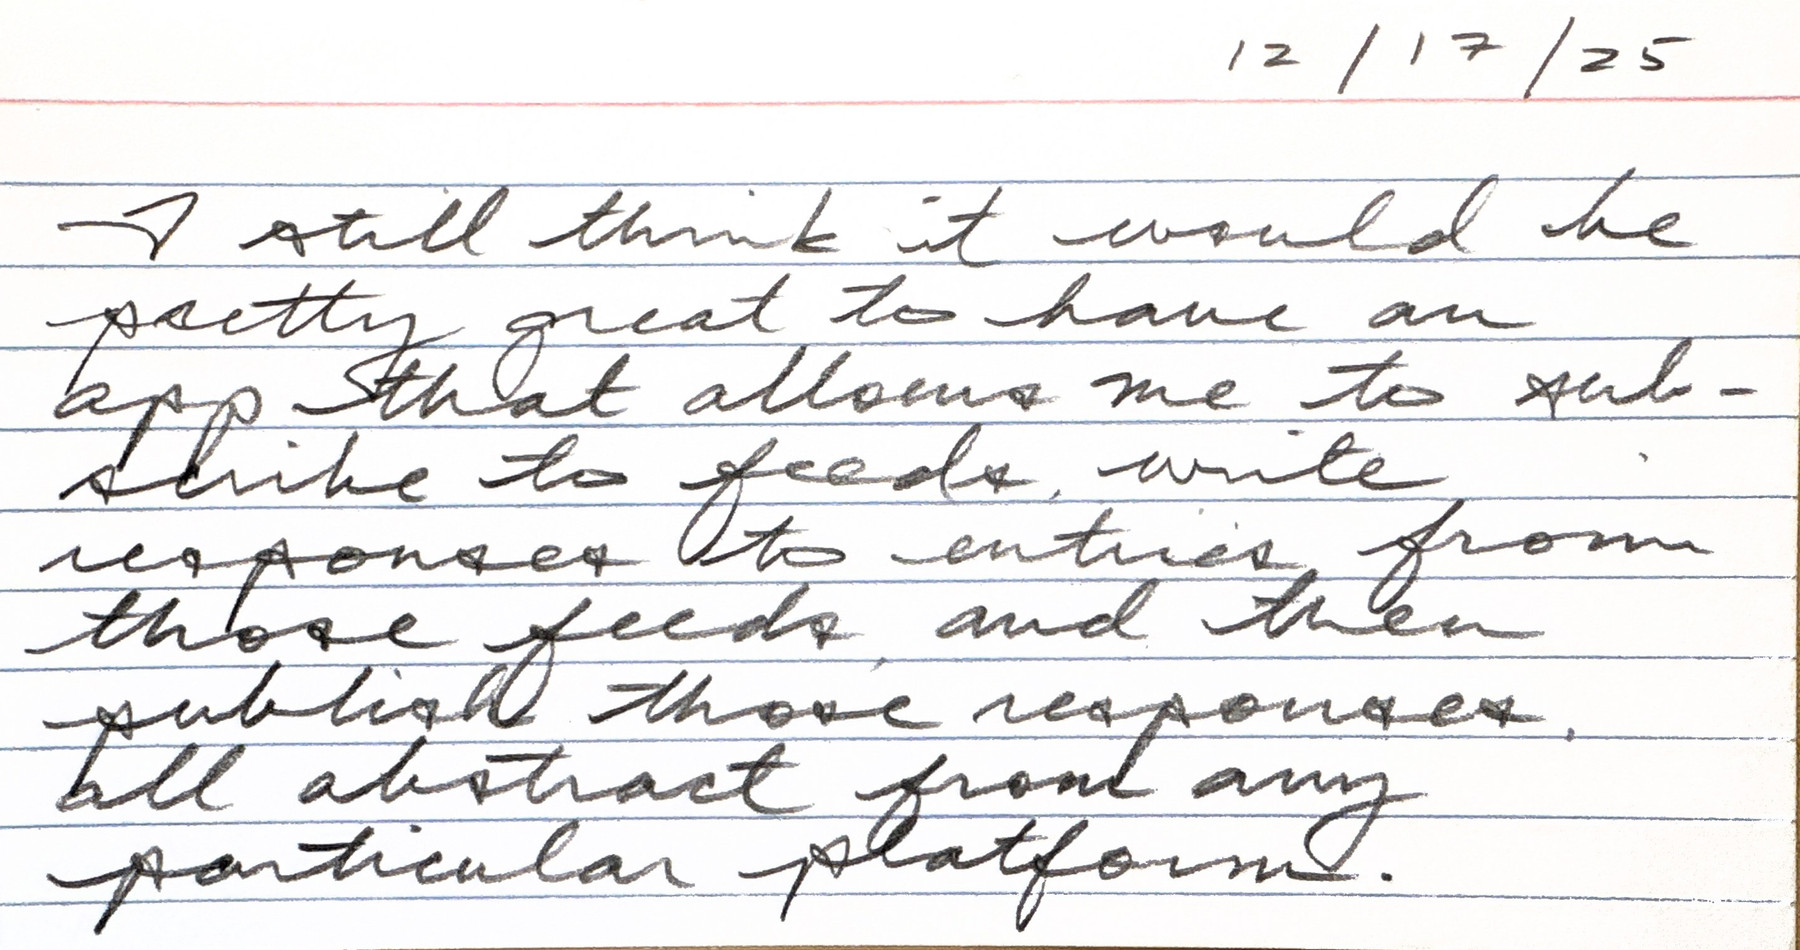 12/17/25
I still think it would be
pretty great to have an
app that allows me to sub-
scribe to feeds, write
responses to entries from
those feeds, and then
publish those responses,
all abstract from any
particular platform.